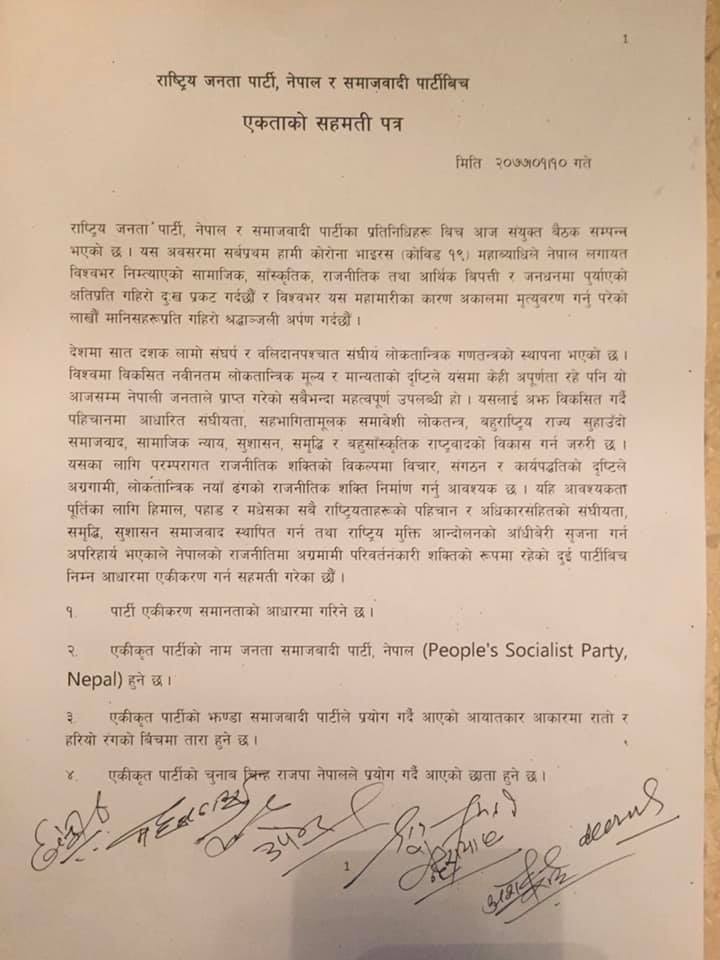 1
राष्ट्रिय जनता पार्टी, नेपाल र समाजवादी पार्टीबिच
एकताको सहमती पत्र
मिति २०७७।०१।१० गते
राष्ट्रिय जनता पार्टी, नेपाल र समाजवादी पार्टीका प्रतिनिधिहरू बिच आज संयुक्त बैठक सम्पन्न
भएको छ । यस अवसरमा सर्बप्रथम हामी कोरोना भाइरस (कोविड १९) महाब्याधिले नेपाल लगायत
विश्वभर निम्त्याएको सामाजिक, साँस्कृतिक, राजनीतिक तथा आर्थिक बिपत्ती र जनधनमा पुर्याएको
क्षतिप्रति गहिरो दुःख प्रकट गर्दछौं र विश्वभर यस महामारीका कारण अकालमा मृत्युवरण गर्नु परेको
लाखौं मानिसहरूप्रति गहिरो श्रद्धाञ्जली अर्पण गर्दछौं ।
देशमा सात दशक लामो संघर्ष र वलिदानपश्चात संघीय लोकतान्त्रिक गणतन्त्रको स्थापना भएको छ ।
विश्वमा विकसित नवीनतम लोकतान्त्रिक मूल्य र मान्यताको दृष्टिले यसमा केही अपूर्णता रहे पनि यो
आजसम्म नेपाली जनताले प्राप्त गरेको सबैभन्दा महत्वपूर्ण उपलब्धी हो । यसलाई अझ विकसित गर्दै
पहिचानमा आधारित संघीयता, सहभागितामूलक समावेशी लोकतन्त्र, बहुराष्ट्रिय राज्य सुहाउँदो
समाजवाद, सामाजिक न्याय, सुशासन, समृद्धि र बहुसाँस्कृतिक राष्ट्रवादको विकास गर्न जरुरी छ ।
यसका लागि परम्परागत राजनीतिक शक्तिको विकल्पमा विचार, संगठन र कार्यपद्धतिको दृष्टिले
अग्रगामी, लोकतान्त्रिक नयाँ ढंगको राजनीतिक शक्ति निर्माण गर्नु आवश्यक छ । यहि आवश्यकता
पूर्तिका लागि हिमाल, पहाड र मधेसका सबै राष्ट्रियताहरूको पहिचान र अधिकारसंहितको संघीयता,
समृद्धि, सुशासन समाजवाद स्थापित गर्न तथा राष्ट्रिय मुक्ति आन्दोलनको आँधीबेरी सृजना गर्न
अपरिहार्य भएकाले नेपालको राजनीतिमा अग्रमामी परिवर्तनकारी शक्तिको रूपमा रहेको दुई पार्टीबिच
निम्न आधारमा एकीकरण गर्न सहमती गरेका छौं ।
१. पार्टी एकीकरण समानताको आधारमा गरिने छ ।
२. एकीकृत पार्टीको नाम जनता समाजबादी पार्टी, नेपाल (People's Socialist Party,
Nepal) हुने छ ।
३ एकीकृत पार्टीको झण्डा समाजबादी पार्टीले प्रयोग गर्दै आएको आयातकार आकारमा रातो र
हरियो रंगको बिचमा तारा हुने छ ।
४ एकीकृत पार्टीको चुनाब चिन्ह राजपा नेपालले प्रयोग गर्दै आएको छाता हुने छ ।
1